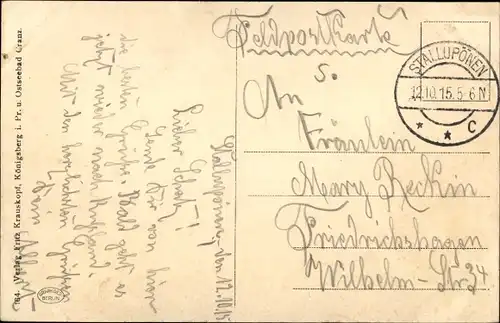 Feldpostkarte
S.
An
Fräulein
Mary Reckin
Friedrichshagen
Wilhelm-Str 34
STALLUPÖNEN
12.10.15.5-6N
* * C
Stallupönen, den 12.10.15
Lieber Schatz!
Sende Dir von hier
die besten Grüße. Bald geht es
jetzt wieder nach Rußland.
Mit den herzlichsten Grüßen
Dein
764 Verlag Fritz Krauskopf, Königsberg i. Pr. u. Ostseebad Cranz.
BERLIN